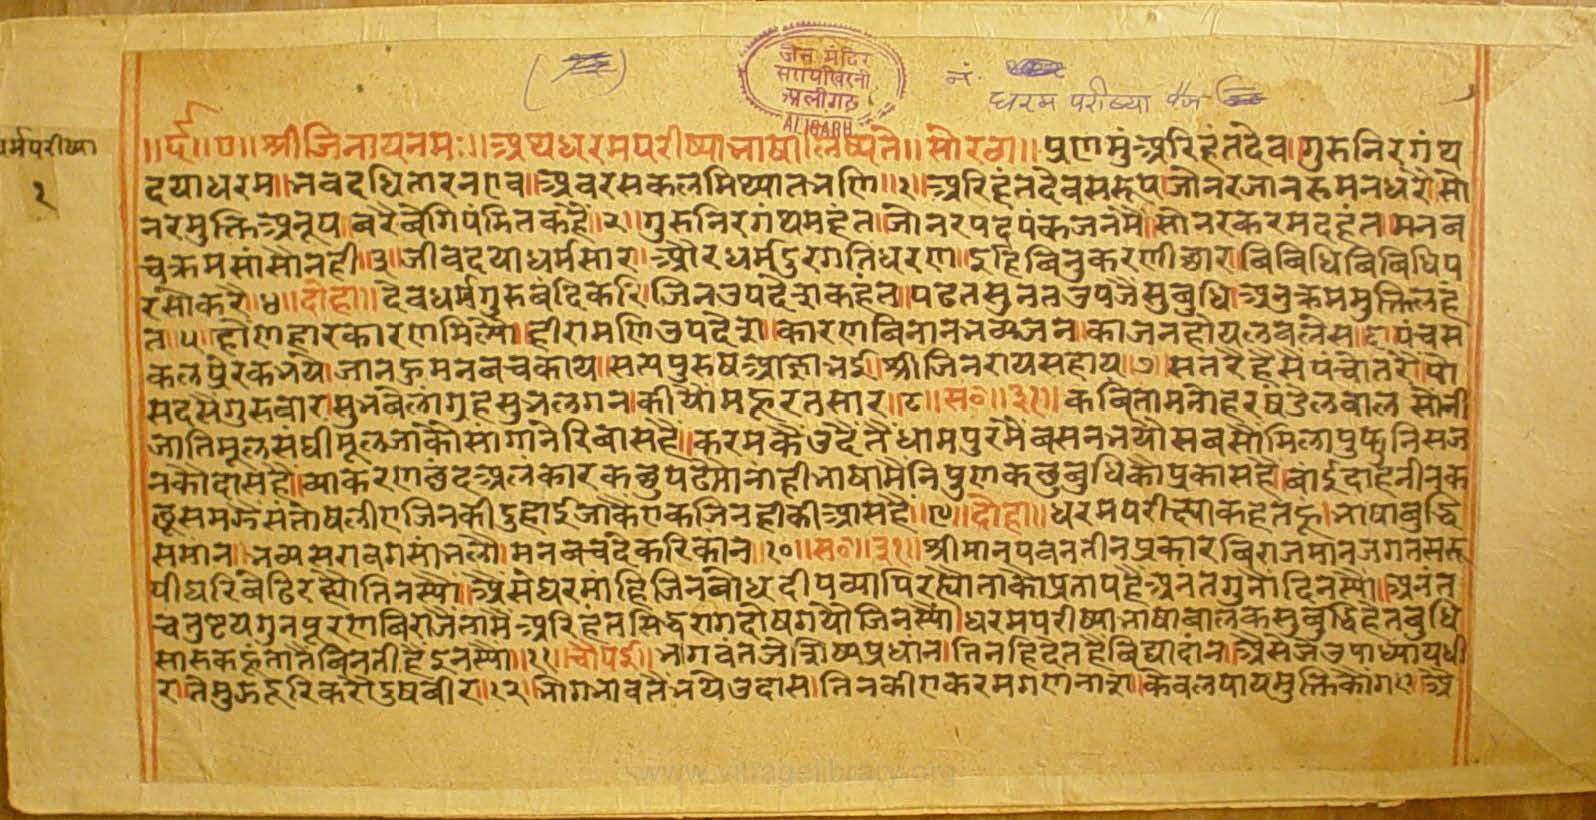 जैन मंदिर
सरायखिरनी
अलीगढ
ALIGARH
नं.
धरम परीष्या पेज
धर्मपरीष्या
१
॥र्द॥ ए॥ श्रीजिनायनमः॥ अथधरमपरीष्याभाषा लिष्यते॥ सोरठा॥ प्रणमुंअरिहंतदेव।गुरुनिरगंथ
दयाधरम॥भवदधितारनएव॥अवरसकलमिथ्यातभणि॥१॥अरिहंतदेवसरूप।जोनरजानरुमनधरै।सो
नरमुक्तिअनूप।बरैबेगिपंडितकहै॥२॥गुरुनिरगंथमहंत।जोनरपदपंकजनमै॥सोनरकरमदहंत।मनब
चक्रमसांसोनही।३॥जीवदयाधर्मसार।औरधर्मदुरगतिधरण॥इहिबिनुकरणीछार।बिबिधिबिबिधिप
रंसोकरै॥४॥दोहा॥ देवधर्मगुरुबंदिकरि।जिनउपदेशकहंत॥पढतसुनतउपजैसुबुधि।अनुक्रममुक्तिलहं
त॥५॥होणहारकारणमिल्यो।हीरामणिउपदेश॥कारणबिनानभव्यजन।काजनहोयलवलेस॥६॥पंचस
कलपुरकभये।जानहुमनबचकाय॥सत्यपुरुषआज्ञाभई।श्रीजिनरायसहाय॥७॥सतरैहैसैपंचोतरै।पो
सदसैगुरुबार।सुभबेलांगृहसुभलगन।कीयोमहूरतसार॥८॥स०॥३१॥ कबितामनोहरषंडेलबाल सोनी
जातिमूलसंघीमूलजाकौसांगानेरिबासहै॥करमकैउदैतैधामपुरमैबसनभयौसबसौमिलापुफुनिसज
नकोदासहै॥व्याकरणछंदअलंकारकछुपढ्यानांहीभाषामैनिपुणकछुबुधिकोप्रकासहै॥बाईदाहनीनक
छूसमझसंतोषलीएजिनकीदुहाईजाकैएकजिनहीकीआसहै॥९॥दोहा॥ धरमपरीष्याकहतहू।भाषाबुद्धि
समान॥भव्यसरावगसांभलौ।मनबचदेकरिकांन॥१०॥स०॥३१॥ श्रीमानपवनतीनप्रकारबिराजमानजगतसरू
पीधरिबेढिरह्योतिनस्यौ॥ऐसेघरमांहिजिनबोधदीपव्यापिरह्योताकोप्रतापहैअनतगुनोदिनस्यौ॥अनंत
चतुष्टयगुनपूरणबिराजैतामैअरिहंतसिद्धरागदोषगयौजिनस्यौ।धरमपरीष्याभाषाबालकसुबुद्धिहेतबुधि
सारुकहूंतातैबिनतीहैइनस्यौ॥११॥चौपई॥भगवंतजेशिष्यप्रधान।तिनहिदेतहैबिद्यादांन।ऐसेजेउपाध्यायधी
र।तेमुझहरिकरौदुषबीर॥१२॥भोगभावतैभयेउदास।तिनकीएकरमगणनाश॥केवलपायमुक्तिकौगए।ऐ